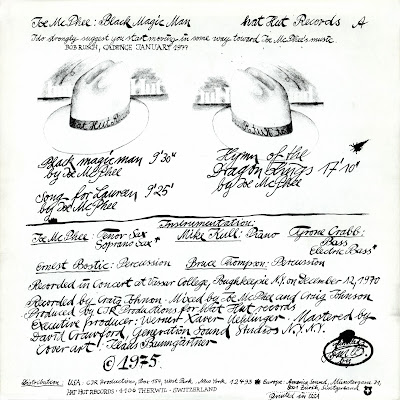 Joe McPhee: Black Magic Man hat Hut Records A
I do strongly suggest you start moving in some way toward Joe McPhee's music.
BOB RUSCH, CADENCE JANUARY 1977
Hat Hut Re
Hat Hut Re
Black magic man 9'30"
by Joe McPhee
Song for Lauren 9'25"
by Joe McPhee
Hymn of the
Dragon Kings 17'10"
by Joe McPhee
Instrumentation:
Joe McPhee: Tenor Sax
Soprano Sax +
Mike Kull: Piano
Tyrone Crabb:
Bass
Electric Bass +
Ernest Bostic: Percussion Bruce Thompson: Percussion
Recorded in Concert at Vassar College, Poughkeepsie N.Y. on December 12, 1970
Recorded by Craig Johnson - Mixed by Joe McPhee and Craig Johnson
Produced by CJR Productions for Hat Hut records
Executive producer: Werner Xavier Uehlinger. Mastered by
David Crawford, Generation Sound Studios N.Y. N.Y.
Cover art: Klaus Baumgartner
© 1975
Distribution USA: CJR Productions, Box 154, West Park, New York 12493 * Europe
HAT HUT RECORDS 4106 THERWIL - SWITZERLAND
Printed in USA